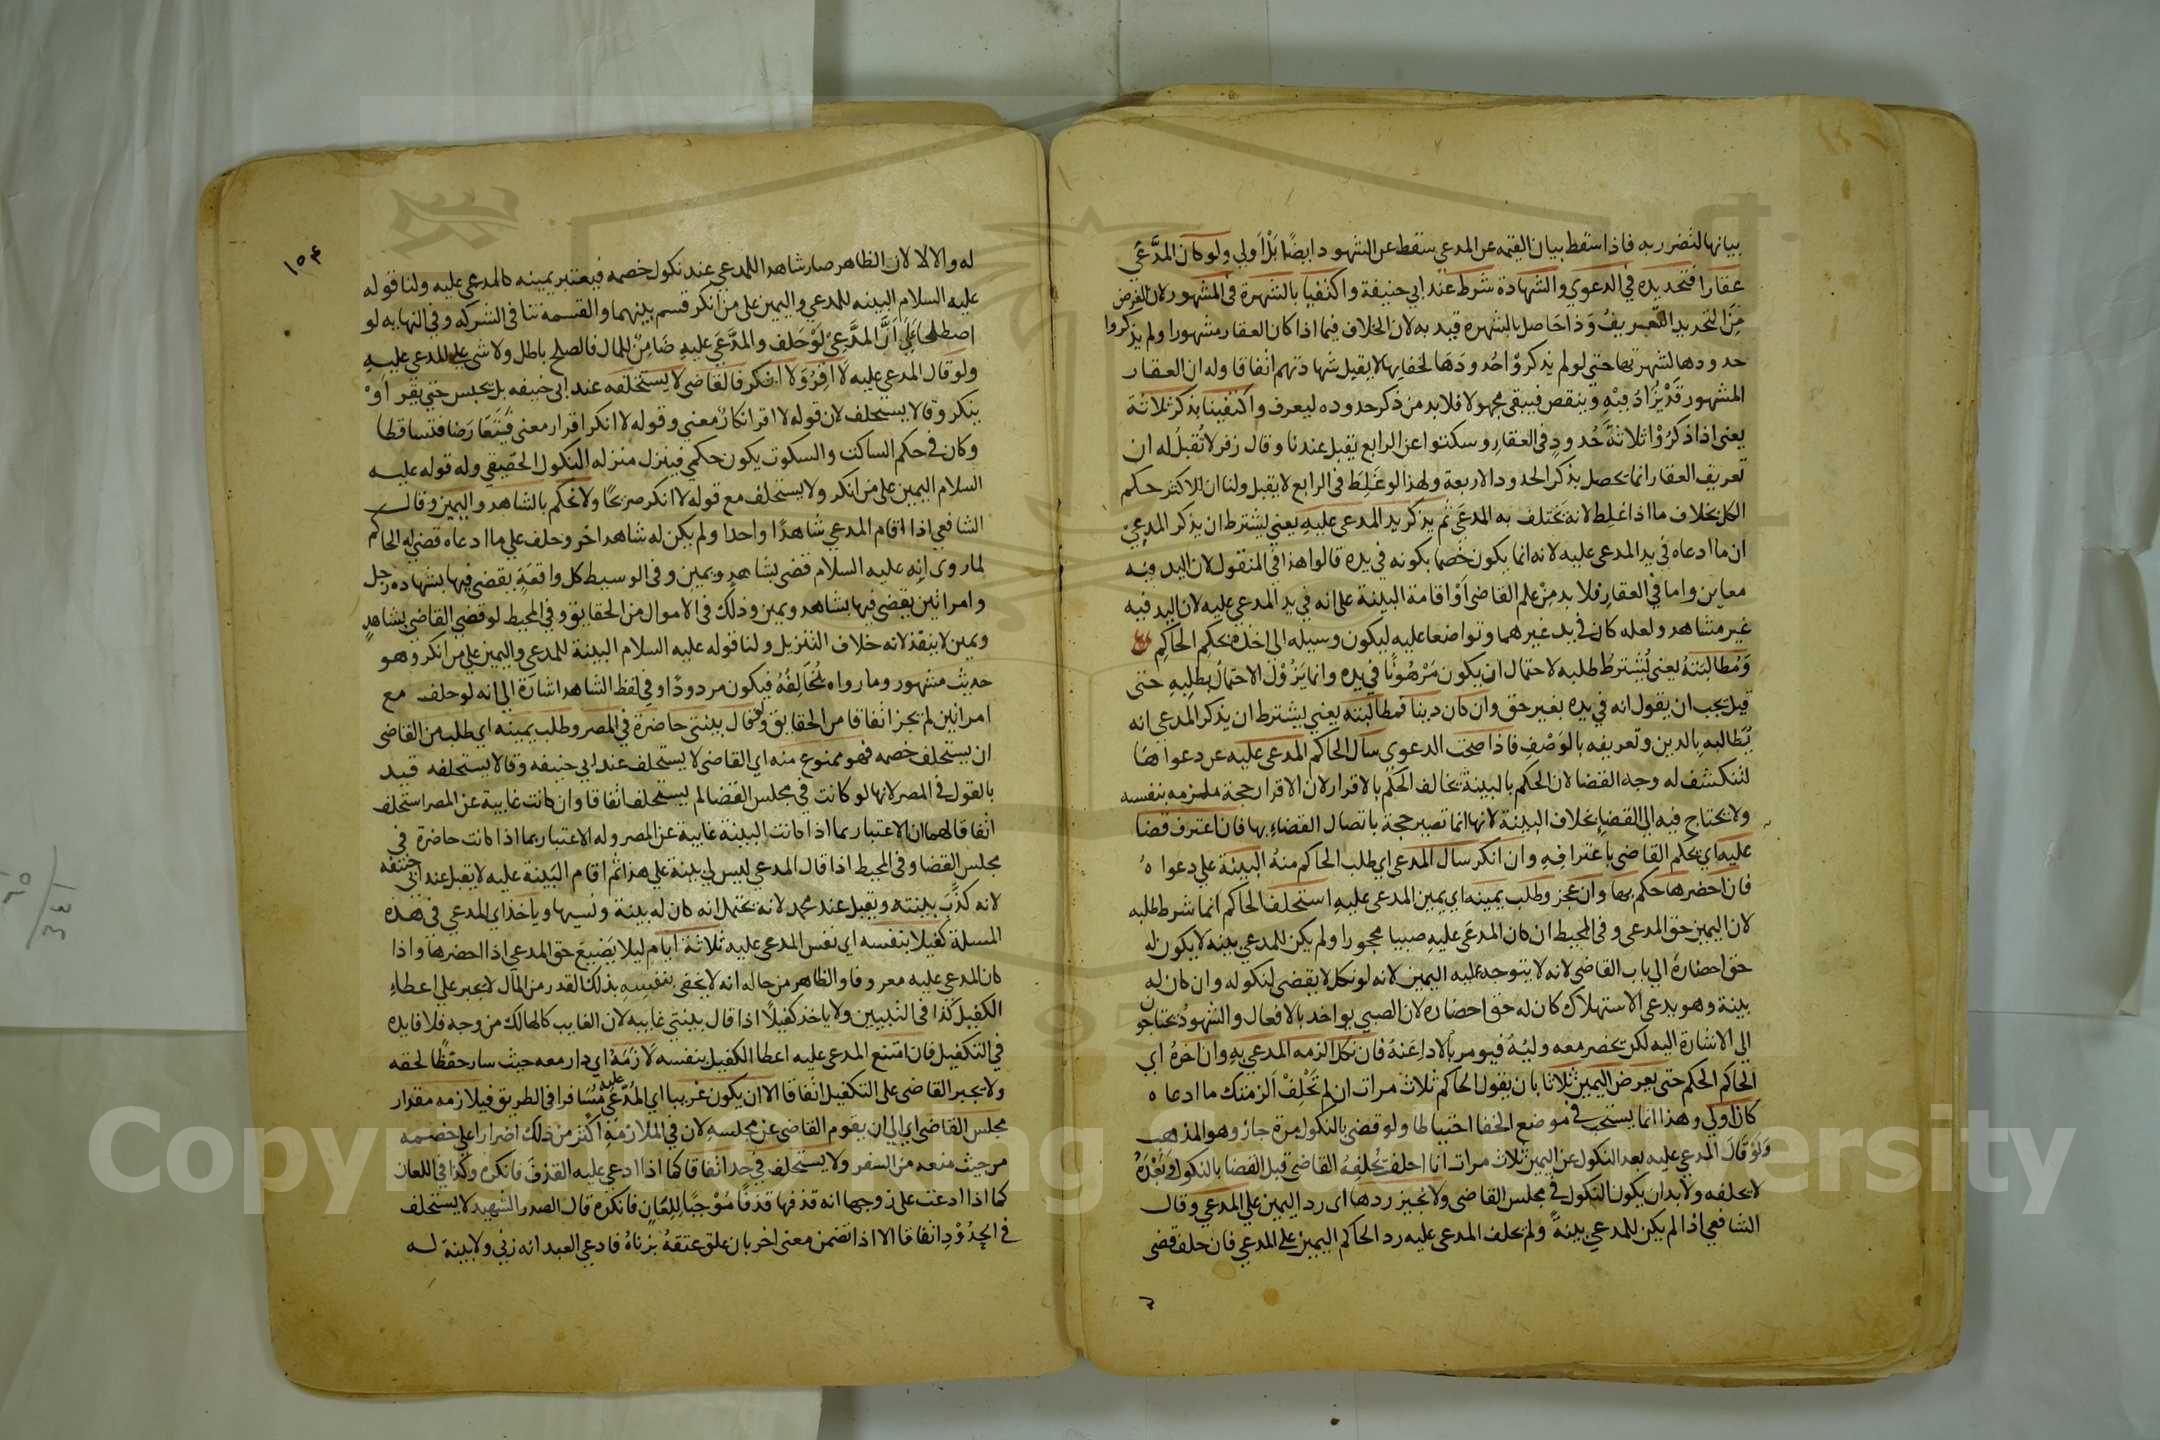 بيانها لتضرر به فاذا سقط بيان القيمة عن المدعي سقط عن الشهود ايضا بل اولي ولو كان المدعي
عقارا فتحديده في الدعوي والشهادة شرط عند ابي حنيفة واكتفيا بالشهرة في المشهور لان الغرض
من التحديد التعريف وذا حاصل بالشهره قيد به لان الخلاف فيما اذا كان العقار مشهورا ولم يذكروا
حدودها لشهرتها حتي لو لم يذكروا حدودها لخفايها لا يقبل شهادتهم اتفاقا وله ان العقار
المشهور قد يزاد فيه وينقص فيبقي مجهولا فلا بد من ذكر حدوده ليعرف واكتفينا بذكر ثلاثة
يعني اذا ذكروا ثلاثة حدود في العقار وسكتوا عن الرابع يقبل عندنا وقال زفر لا تقبل له ان
تعريف العقار انما يحصل بذكر الحدود الاربعة ولهذا لو غلط في الرابع لا يقبل ولنا ان للاكثر حكم
الكل بخلاف ما اذا غلط لانه يختلف به المدعي ثم يذكر يد المدعي عليه يعني يشترط ان يذكر المدعي
ان ما ادعاه في يد المدعي عليه لانه انما يكون خصما بكونه في يده قالوا هذا في المنقول لان اليد فيه
معاين واما في العقار فلا بد من علم القاضي او اقامة البينة علي انه في يد المدعي عليه لان اليد فيه
غير مشاهد ولعله كان في يد غيرهما وتواضعا عليه ليكون وسيله الي اخذه بحكم الحاكم
ومطالبته يعني يشترط طلبه لاحتمال ان يكون مرهونا في يده وانما يزول الاحتمال بطلبه حتي
قيل يجب ان يقول انه في يده بغير حق وان كان دينا فمطالبته يعني يشترط ان يذكر المدعي انه
يطالبه بالدين وتعريفه بالوصف فاذا صحت الدعوي سأل الحاكم المدعي عليه عن دعواها
لتنكشف له وجه القضا لان الحكم بالبينة يخالف الحكم بالاقرار لان الاقرار حجة ملزمه بنفسه
ولا يحتاج فيه الي القضاء بخلاف البينة لانها انما تصير حجة باتصال القضاء بها فان اعترف قضا
عليه اي يحكم القاضي باعترافه وان انكر سال المدعي اي طلب الحاكم منه البينة علي دعواه
فان احضرها حكم بها وان عجز وطلب يمينه اي يمين المدعي عليه استحلف الحاكم انما شرط طلبه
لان اليمين حق المدعي وفي المحيط ان كان المدعي عليه صبيا محجورا ولم يكن للمدعي بينه لا يكون له
حق احضاره الي باب القاضي لانه لا يتوجه عليه اليمين لانه لو نكل لا يقضي لنكوله وان كان له
بينة وهو يدعي الاستهلاك كان له حق احضاره لان الصبي يواخذ بالافعال والشهود يحتاجون
الي الاشارة اليه لكن يحضر معه وليه فيومر بالاداء عنه فان نكل الزمه المدعي به وان اخره اي
الحاكم الحكم حتي يعرض اليمين ثلاثا بان يقول الحاكم ثلاث مرات ان لم تحلف الزمتك ما ادعاه
كان اولي وهذا انما يستحب في موضع الخفا احتياطا ولو قضي بالنكول مرة جاز وهو المذهب
ولو قال المدعي عليه بعد النكول عن اليمين ثلاث مرات انا احلف يحلفه القاضي قبل القضا بالنكول وبعده
لا يحلفه ولا بد ان يكون النكول في مجلس القاضي ولا نجيز ردها اي رد اليمين علي المدعي وقال
الشافعي اذا لم يكن للمدعي بينة ولم يحلف المدعي عليه رد الحاكم اليمين علي المدعي فان حلف قضي
١٥٤
له والا لا لان الظاهر صار شاهدا للمدعي عند نكول خصمه فيعتبر يمينه كالمدعي عليه ولنا قوله
عليه السلام البينه للمدعي واليمين علي من انكر قسم بينهما والقسمه تنافي الشركه وفي النهايه لو
اصطلحا علي ان المدعي لو حلف والمدعي عليه ضامن للمال فالصلح باطل ولا شي علي المدعي عليه
ولو قال المدعي عليه لا اقر ولا انكر فالقاضي لا يستحلفه عند ابي حنيفه بل يحبس حتي يقر او
ينكر وقالا يستحلف لان قوله لا اقر انكار معني وقوله لا انكر اقرار معني فتعارضا فتساقطا
وكان في حكم الساكت والسكوت يكون حكمي فينزل منزله النكول الحقيقي وله قوله عليه
السلام اليمين علي من انكر ولا يستحلف مع قوله لا انكر صريحا ولا نحكم بالشاهد واليمين وقال
الشافعي اذا اقام المدعي شاهدا واحدا ولم يكن له شاهد اخر وحلف علي ما ادعاه قضي له الحاكم
لما روي انه عليه السلام قضي بشاهد ويمين وفي الوسيط كل واقعة يقضي فيها بشهادة رجل
وامراتين يقضي فيها بشاهد ويمين وذلك في الاموال من الحقايق وفي المحيط لو قضي القاضي بشاهد
ويمين لا ينفذ لانه خلاف التنزيل ولنا قوله عليه السلام البينة للمدعي واليمين علي من انكر وهو
حديث مشهور وما رواه يخالفه فيكون مردودا وفي لفظ الشاهد اشارة الي انه لو حلف مع
امراتين لم يجز اتفاقا من الحقايق ولو قال بينتي حاضرة في المصر وطلب يمينه اي طلب من القاضي
ان يستحلف خصمه فهو ممنوع منه اي القاضي لا يستحلف عند ابي حنيفه وقالا يستحلفه قيد
بالقول في المصر لانها لو كانت في مجلس القضا لم يستحلف اتفاقا وان كانت غايبة عن المصر استحلف
اتفاقا لهما ان الاعتبار بما اذا كانت البينة غايبة عن المصر وله الاعتبار بما اذا كانت حاضرة في
مجلس القضا وفي المحيط اذا قال المدعي ليس لي بينة علي هذا ثم اقام البينة عليه لا يقبل عند ابي حنيفه
لانه كذب بينته ويقبل عند محمد لانه يحتمل انه كان له بينة ونسيها وياخذ اي المدعي في هذه
المسلة كفيلا بنفسه اي نفس المدعي عليه ثلاثة ايام ليلا يضيع حق المدعي اذا احضرها واذا
كان المدعي عليه معروفا والظاهر من حاله انه لا يخفي بنفسه بذلك القدر من المال لا يجبر علي اعطاء
الكفيل كذا في التبيين ولا ياخذ كفيلا اذا قال بينتي غايبه لان الغايب كالهالك من وجه فلا فايده
في التكفيل فان امتنع المدعي عليه اعطا الكفيل بنفسه لازمه اي دار معه حيث سار حفظا لحقه
ولا يجبر القاضي علي التكفيل اتفاقا الا ان يكون غريبا اي المدعي عليه مسافرا في الطريق فيلازمه مقدار
مجلس القاضي اي الي ان يقوم القاضي عن مجلسه لان في الملازمة اكثر من ذلك اضرارا علي خصمه
من حيث منعه من السفر ولا يستحلف في حد اتفاقا كما اذا ادعي عليه القذف فانكره وكذا في اللعان
كما اذا ادعت علي زوجها انه قذفها قذفا موجبا للعان فانكره قال الصدر الشهيد لا يستحلف
في الحدود اتفاقا الا اذا تضمن معني اخر بان علق عتقه بزناه فادعي العبد انه زني ولا بينة له
Copyright © King Saud University